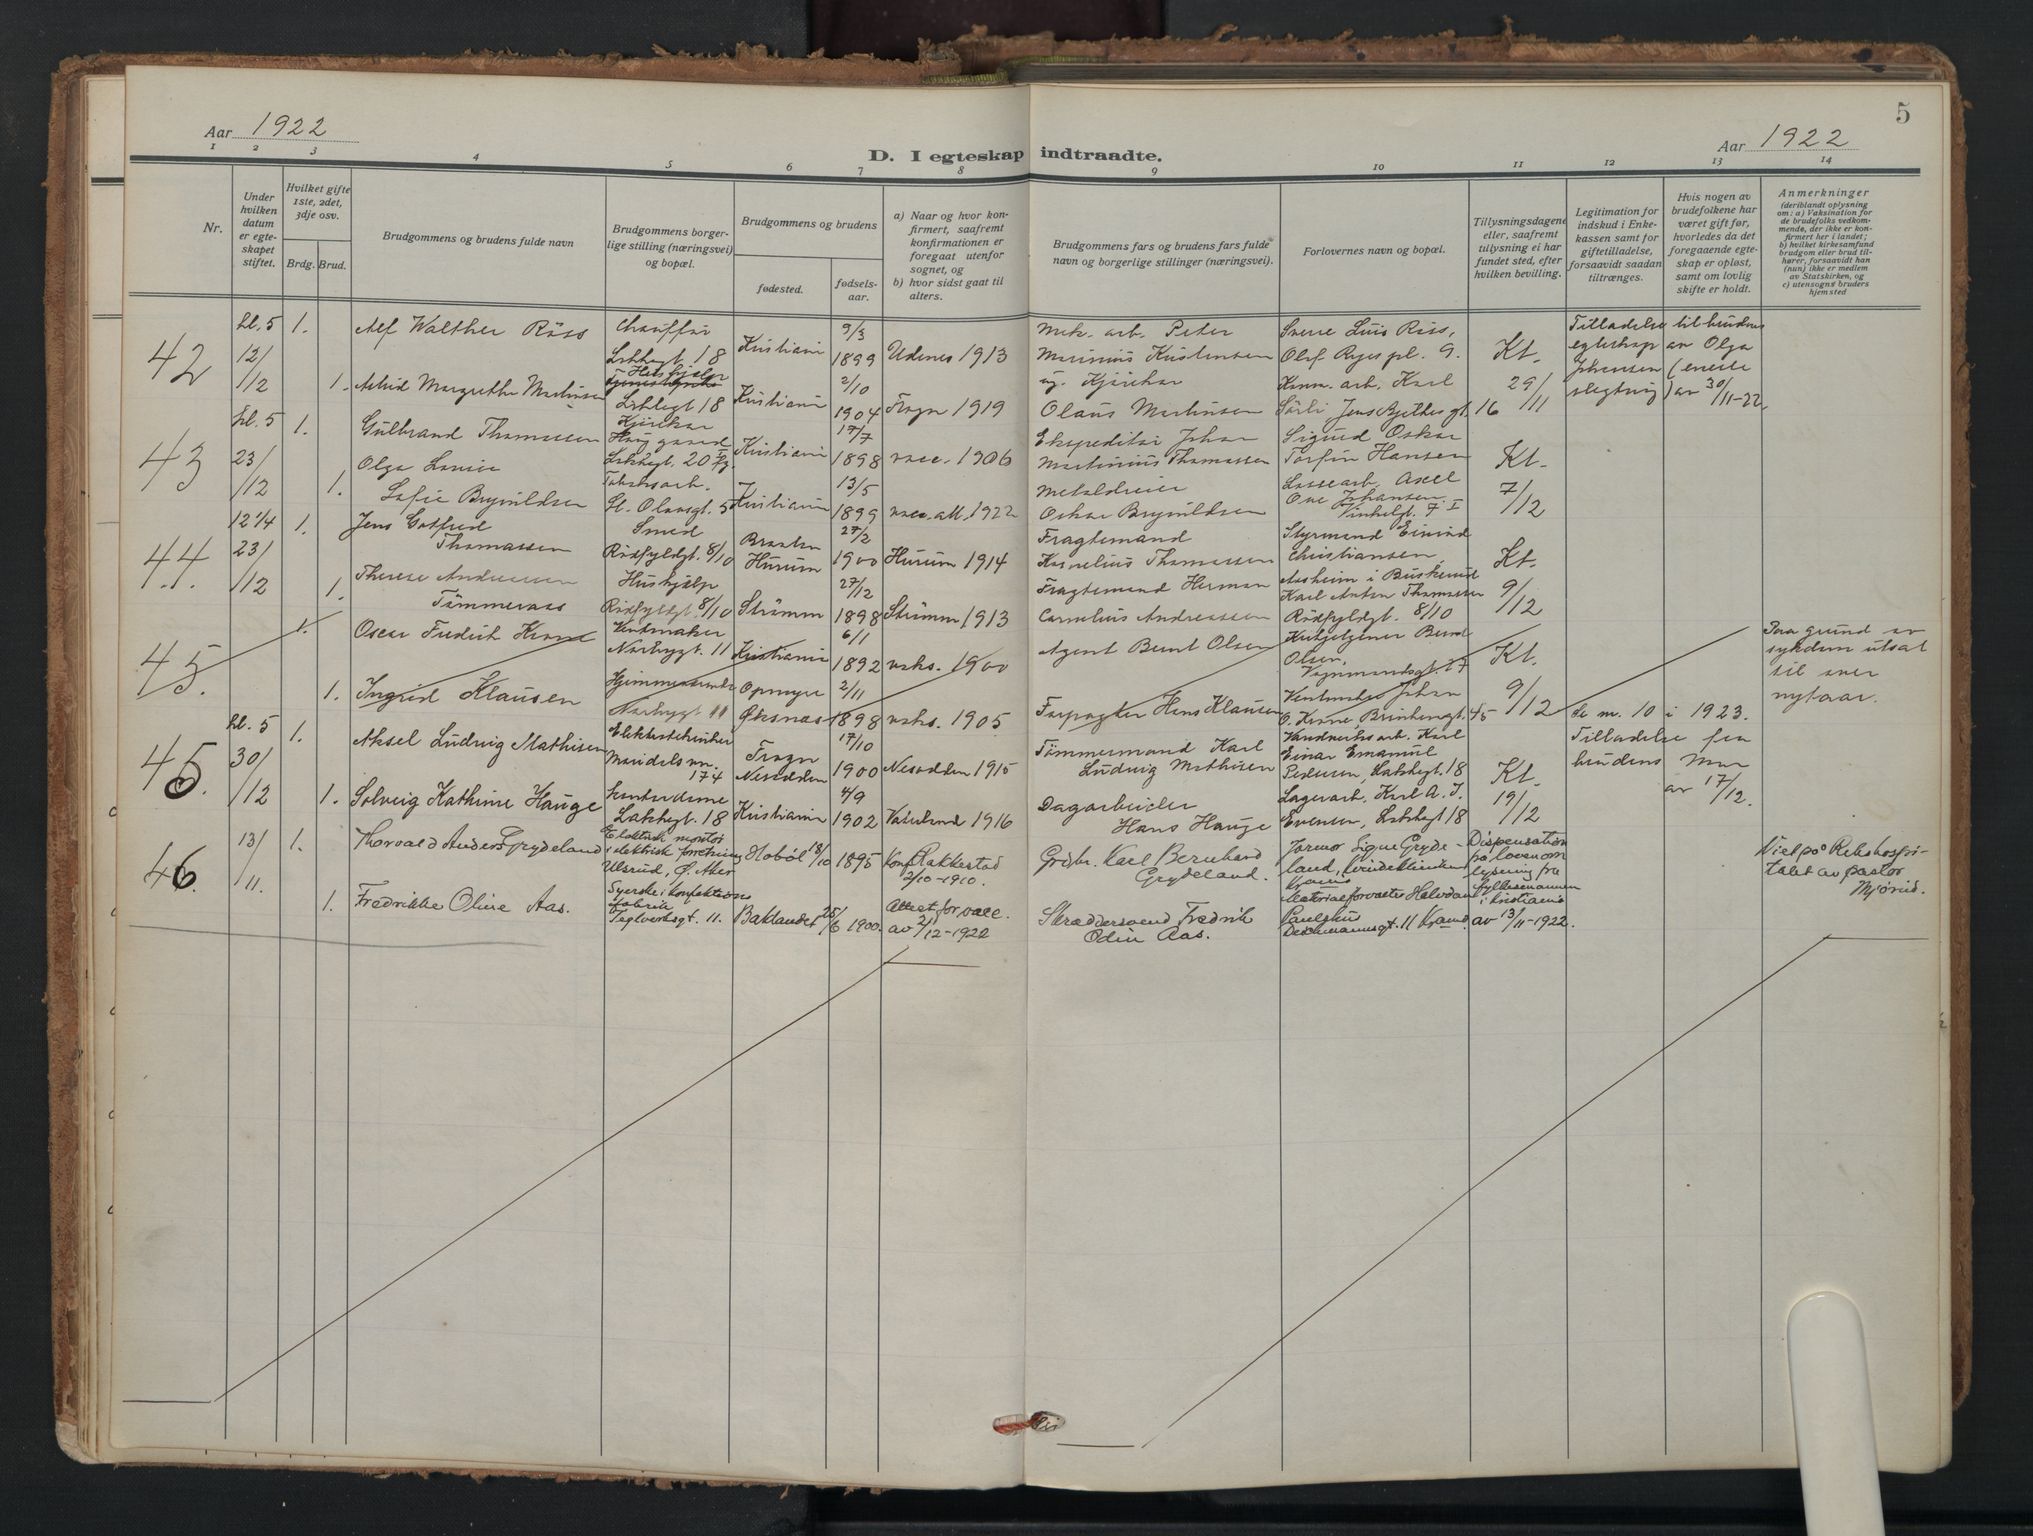 5
Aar 1922
D. I egteskap indtraadte.
Aar 1922
1 2 3 4 5 6 7 8 9 10 11 12 13 14
Nr.
Under hvilken datum er egteskapet stiftet.
Hvilket gifte 1ste, 2det, 3dje osv.
Brdg. Brud.
Brudgommens og brudens fulde navn
Brudgommens borgerlige stilling (næringsvei) og bopæl.
Brudgommens og brudens
fødested.
fødselsaar.
a) Naar og hvor konfirmert, saafremt konfirmationen er foregaat utenfor sognet, og
b) hvor sidst gaat til alters.
Brudgommens fars og brudens fars fulde navn og borgerlige stillinger (næringsvei).
Forlovernes navn og bopæl.
Tillysningsdagene eller, saafremt tillysning ei har fundet sted, efter hvilken bevilling.
Legitimation for indskud i Enkekassen samt for giftetilladelse, forsaavidt saadan tiltrænges.
Hvis nogen av brudefolkene har været gift før, hvorledes da det foregaaende egteskap er opløst, samt om lovlig skifte er holdt.
Anmerkninger
(deriblandt oplysning om: a) Vaksination for de brudefolks vedkommende, der ikke er konfirmert her i landet;
b) hvilket kirkesamfund brudgom eller brud tilhører, forsaavidt han (hun) ikke er medlem av Statskirken, og
c) utensogns bruders hjemsted
42
kl. 5
12/12
1.
Alf Walther Röss
Chauffør
Lakkegt. 18
Kristiania
9/3
1899
Udenes 1913
Mek. arb. Peter
Marinius Kristensen
Sverre Luis Röss,
Olaf Ryes pl. 9.
Kt.
29/11
Tilladelse til brudens
egteskap av Olga
Johansen (eneste
slegtning) av 30/11-22.
1.
Astrid Margrethe Martinsen
Lakkegt 18
Kristiania
2/10
1904
Fragn 1919
ug. Kjørekar
Olaus Martinsen
Komm. arb. Karl
Sørli Jens Bjelkes gt. 16
43
kl. 5
23/12
1.
Gulbrand Thomassen
Kjørekar
Lakkegt. 20
Kristiania
17/7
1898
vacc. 1906
Ekspeditør Johan
Martinius Thomassen
Sigurd Oskar
Torfin Hansen
Kt.
7/12
1.
Olga Lovise
Sofie Brynildsen
Fabrikarb.
St. Olavsgt. 5
Kristiania
13/5
1899
vacc. att. 1922
Metaldreier
Oskar Brynildsen
Lossearb. Axel
Ove Johansen
Vinkelgt. 7 I
44.
12 1/4
23/12
1.
Jens Gotfred
Thomassen
Smed
Rødfyldgt. 8/10
Hurum
27/2
1900
Hurum 1914
Fragtemand
Kornelius Thomassen
Styrmand Eivind
Christiansen,
Aasheim i Buskerud
Kt.
9/12
1.
Therese Andreassen
Tømmeraas
Hushjælp
Rødfyldgt 8/10
Strømm
27/12
1898
Strømm 1913
Fragtemand Herman
Cornelius Andreassen
Karl Anton Thomassen
Rødfyldgt. 8/10
45.
1.
Oscar Fredrik Krone
Norbygt. 11
Kristiania
6/1
1892
vaks. 1900
Agent Bernt Olsen
Olsen,
Vognmandsgt. 17
Kt.
9/12
Paa grund av
sykdom utsat
til over
nytaar.
1.
Ingrid Klausen
Norbygt 11
Øksnas
2/11
1898
vaks. 1905
Forpagter Hans Klausen
Se nr. 10 i 1923.
45.
kl. 5
30/12
1.
Aksel Ludvig Mathisen
174
Fragn
Nesodden
17/10
1900
Nesodden 1915
Tømmermand Karl
Ludvig Mathisen
Vandverksarb. Karl
Einar Emanuel
Pedersen, Lakkegt. 18
Kt.
19/12
Tilladelse fra
brudens Mor
av 17/12.
1.
Solveig Kathrine Hauge
Kontordame
Lakkegt. 18
Kristiania
4/9
1902
Vaterland 1916
Dagarbeider
Hans Hauge
Lagerarb. Karl A. J.
Evensen, Lakkegt 18
46.
13/11.
1.
Thorvald Anders Grydeland
Elektrisk montør
i elektrisk forretning
Ulsrud, Ø. Aker
Hobøl
18/10 1895
Konf. Rakkestad
2/10-1910.
Grdbr. Karl Bernhard
Grydeland.
Jarmor Signe Grydeland,
Kr.ania
Dispensation
på loven om
lysning fra
fylkesmannen
i Kristiania
av 13/11-1922.
Viet på Rikshospitalet
av pastor
Mjørud.
1.
Fredrikke Oline Aas.
Syerske i konfektionsfabrik
Teglverksgt. 11.
Baklandet
25/6 1900.
Attest for vacc.
av 2/12-1922
Skræddersvend Fredrik
Odin Aas.
Materialforvalter Halvdan
Paulshus
Deichmannsgt. 11 Kr.ania.